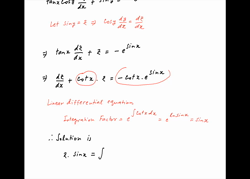 Let siny = z ⇒ cosy dy/dx = dz/dx
⇒ tanx dz/dx + z = -e^sinx
⇒ dz/dx + cotx. z = -cotx. e^sinx
Linear differential equation
Integration Factor = e^∫cotxdx = e^lnsinx = sinx
∴ Solution is
z. sinx = ∫